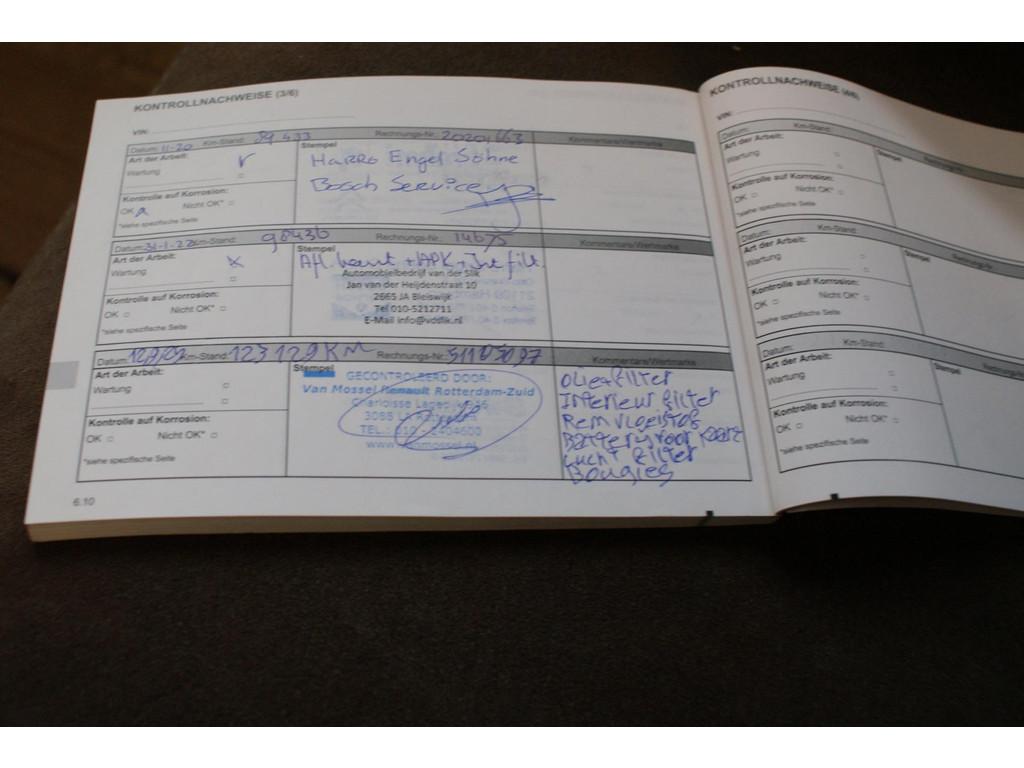 KONTROLLNACHWEISE (3/6)
VIN:
Datum: 11-20 Km-Stand: 89 433 Rechnungs-Nr.: Kommentare/Wertmarke
Art der Arbeit:
Wartung
Stempel
Harro Engel Söhne
Bosch Service
Kontrolle auf Korrosion:
OK Nicht OK*
*siehe spezifische Seite
Datum: 31-1-22 Km-Stand: 98436 Rechnungs-Nr.: Kommentare/Wertmarke
Art der Arbeit:
Wartung
Stempel
Afl. beurt + APK + Int filt.
Automobielbedrijf van der Slik
Jan van der Heijdenstraat 10
2665 JA Bleiswijk
Tel 010-5212711
E-Mail info@vdslik.nl
Kontrolle auf Korrosion:
OK Nicht OK*
*siehe spezifische Seite
Datum: Km-Stand: 123 129 KM Rechnungs-Nr.: Kommentare/Wertmarke
Art der Arbeit:
Wartung
Stempel
GECONTROLEERD DOOR:
Van Mossel Renault Rotterdam-Zuid
Charloisse Lagedijk
TEL.: 010
www.vanmossel.nl
Olie+filter
Interieur filter
Remvloeistof
Batterij voor kaart
Lucht filter
Bougies
Kontrolle auf Korrosion:
OK Nicht OK*
*siehe spezifische Seite
6.10
KONTROLLNACHWEISE (4/6)
VIN:
Datum: Km-Stand: Rechnungs-Nr.
Art der Arbeit:
Wartung
Stempel
Kontrolle auf Korrosion:
OK Nicht OK*
*siehe spezifische Seite
Datum: Km-Stand: Rechnungs-Nr.
Art der Arbeit:
Wartung
Stempel
Kontrolle auf Korrosion:
OK Nicht OK*
*siehe spezifische Seite
Datum: Km-Stand: Rechnungs-Nr.
Art der Arbeit:
Wartung
Stempel
Kontrolle auf Korrosion:
OK Nicht OK*
*siehe spezifische Seite